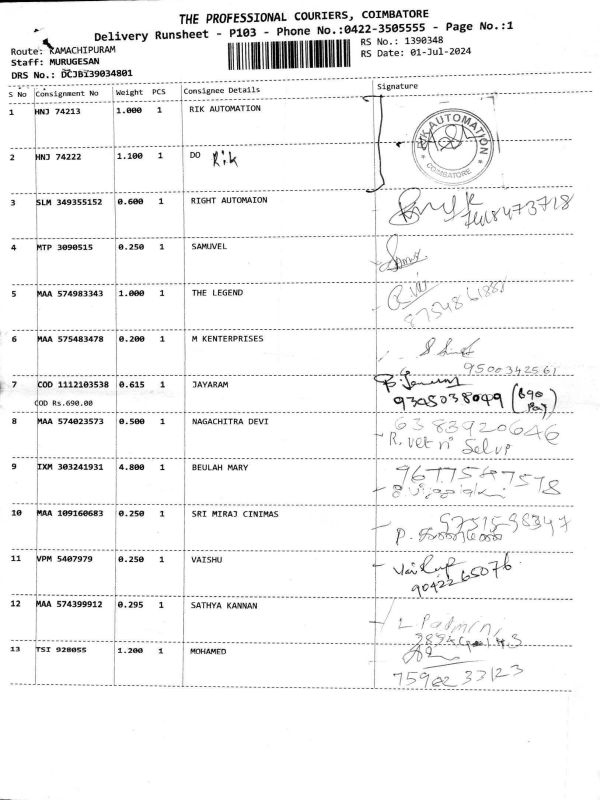 THE PROFESSIONAL COURIERS, COIMBATORE
Delivery Runsheet - P103 - Phone No.:0422-3505555 - Page No.:1
Route: KAMACHIPURAM
RS No.: 1390348
Staff: MURUGESAN
RS Date: 01-Jul-2024
DRS No.: DCJBI39034801
S No Consignment No Weight PCS Consignee Details Signature
1 HNJ 74213 1.000 1 RIK AUTOMATION
RIK AUTOMATION
* COIMBATORE *
2 HNJ 74222 1.100 1 DO Rik
3 SLM 349355152 0.600 1 RIGHT AUTOMAION
4 MTP 3090515 0.250 1 SAMUVEL
5 MAA 574983343 1.000 1 THE LEGEND
6 MAA 575483478 0.200 1 M KENTERPRISES
9500342561
7 COD 1112103538 0.615 1 JAYARAM
COD Rs.690.00
9345038049 (690 Pay)
8 MAA 574023573 0.500 1 NAGACHITRA DEVI
6383920646
R. Vetri Selvi
9 IXM 303241931 4.800 1 BEULAH MARY
9677547578
10 MAA 109160683 0.250 1 SRI MIRAJ CINIMAS
9751598347
11 VPM 5407979 0.250 1 VAISHU
9042265076
12 MAA 574399912 0.295 1 SATHYA KANNAN
L Padmini
13 TSI 928055 1.200 1 MOHAMED
7598233123